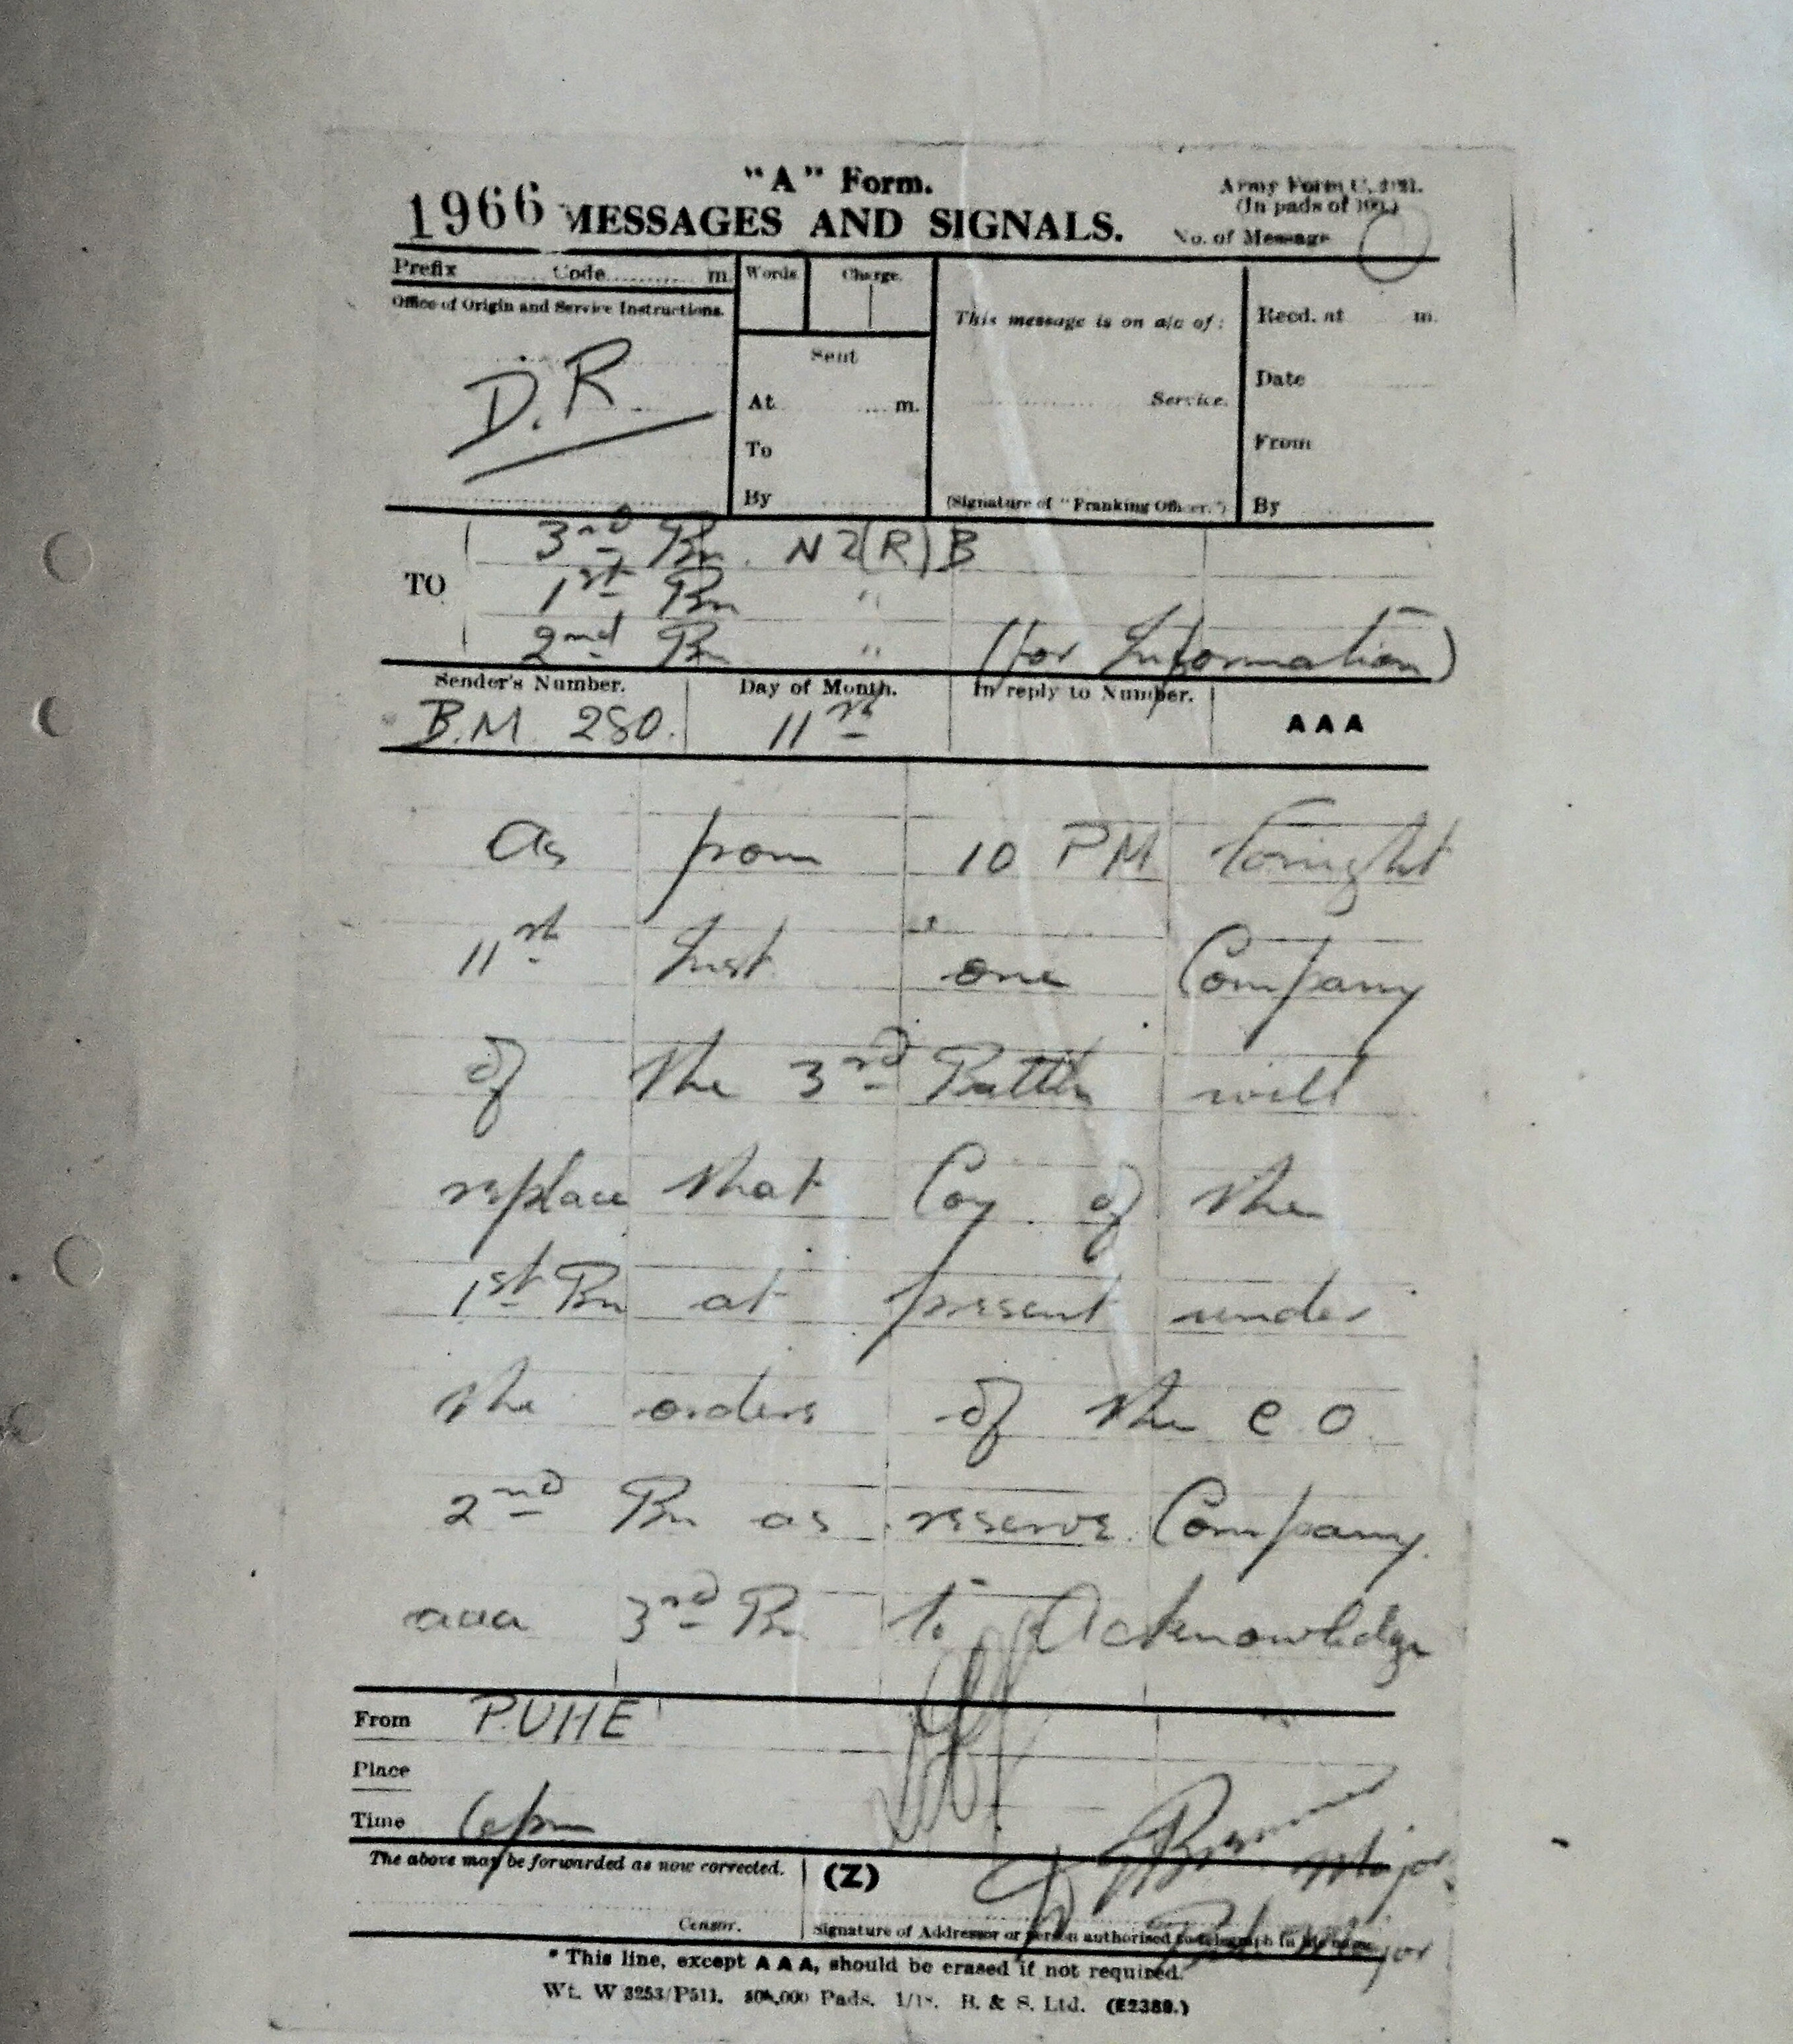 "A" Form.
Army Form C. 2121.
1966 MESSAGES AND SIGNALS.
(In pads of 100.)
No. of Message
Prefix Code m. Words Charge.
Office of Origin and Service Instructions.
This message is on a/c of:
Recd. at m.
D.R
Sent
Date
At m.
Service.
To
From
By
(Signature of "Franking Officer.")
By
3rd Bn. NZ(R)B
TO 1st Bn "
2nd Bn " (for Information)
Sender's Number. Day of Month. In reply to Number.
B.M. 280. 11th AAA
As from 10 PM Tonight
11th Inst one Company
of the 3rd Battln will
replace that Coy of the
1st Bn at present under
the orders of the C.O.
2nd Bn as reserve Company.
aaa 3rd Bn to Acknowledge
From PUHE
Place
Time 6 pm
Major
The above may be forwarded as now corrected. (Z)
Censor.
Signature of Addressor or person authorised to telegraph in his name
Major
* This line, except AAA, should be erased if not required.
Wt. W 3253/P511. 500,000 Pads. 1/18. B. & S. Ltd. (E2389.)